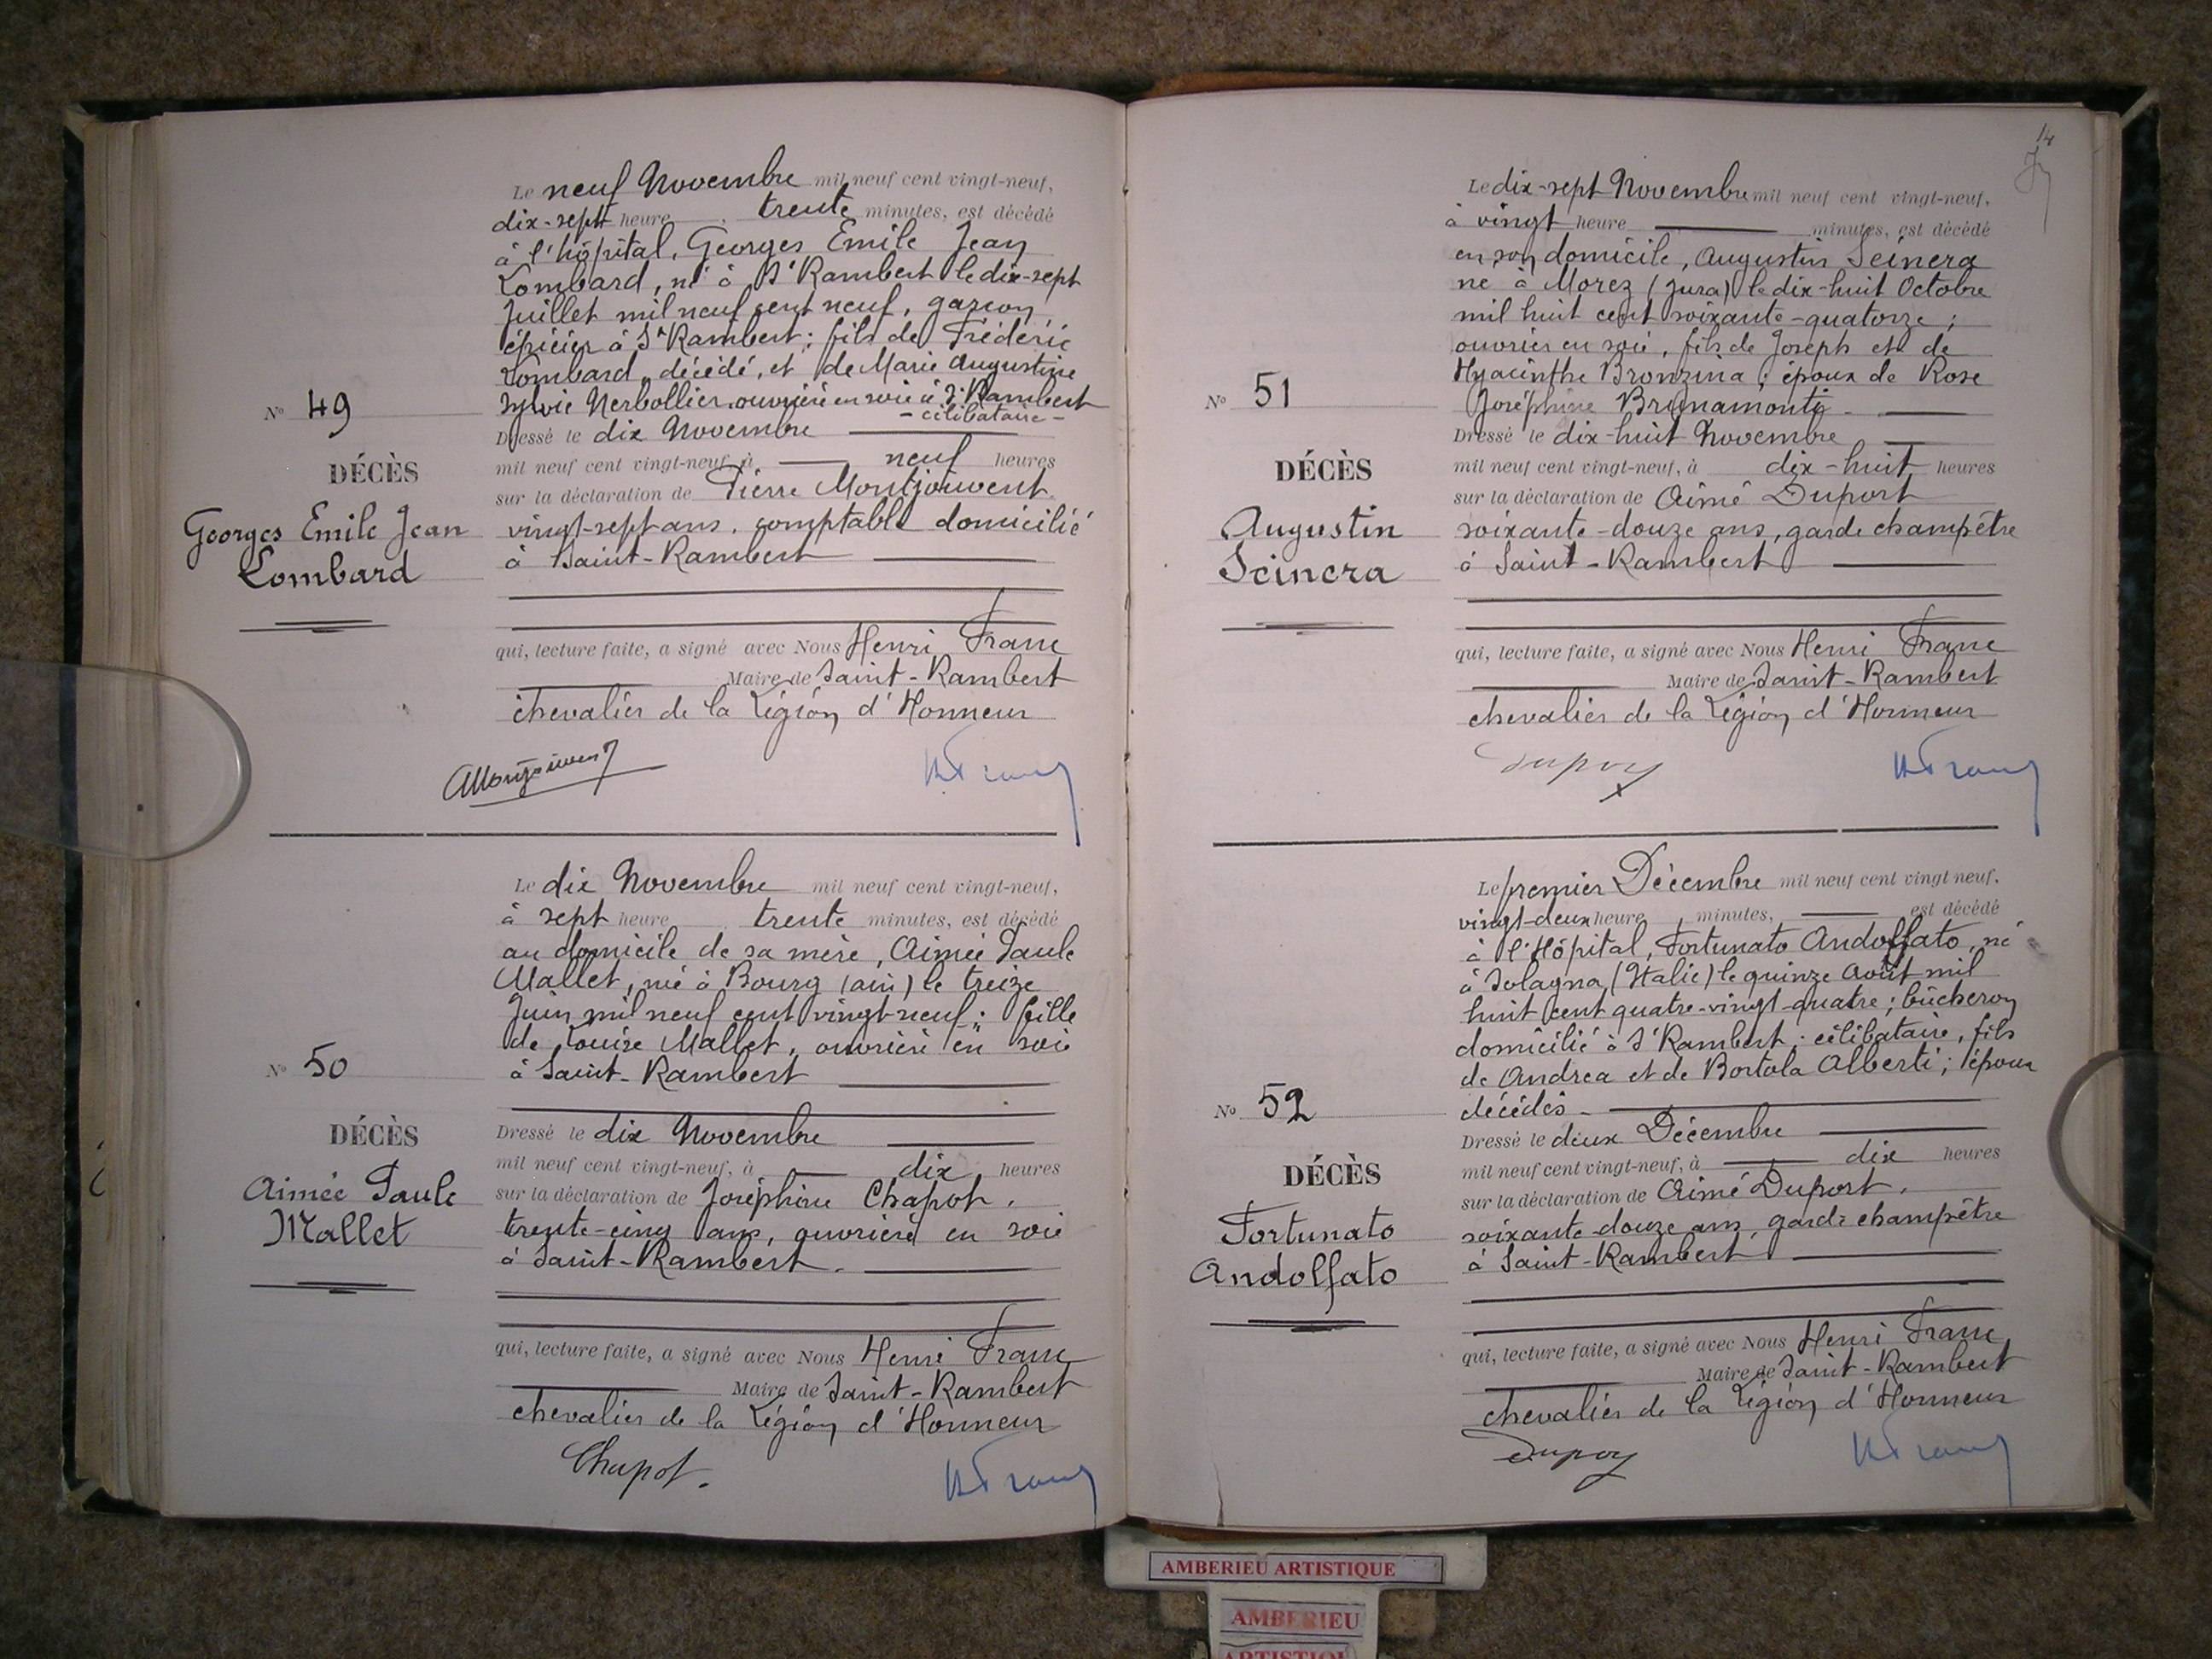 Le neuf Novembre mil neuf cent vingt-neuf,
dix-sept heure trente minutes, est décédé
à l'hôpital, Georges Emile Jean
Lombard, né à St Rambert le dix-sept
Juillet mil neuf cent neuf, garçon
épicier à St Rambert; fils de Frédéric
Lombard, décédé, et de Marie Augustine
Sylvie Nerbollier, ouvrière en soie à St Rambert
- célibataire -
N° 49
Dressé le dix Novembre
DÉCÈS
mil neuf cent vingt-neuf, à neuf heures
sur la déclaration de Pierre Montjouvent
Georges Emile Jean
Lombard
vingt-sept ans, comptable domicilié
à Saint-Rambert
qui, lecture faite, a signé avec Nous Henri Franc
Maire de Saint-Rambert
chevalier de la Légion d'Honneur
Le dix Novembre mil neuf cent vingt-neuf,
à sept heure trente minutes, est décédé
au domicile de sa mère, Aimée Paule
Mallet, née à Bourg (ain) le treize
Juin mil neuf cent vingt-neuf; fille
de Louise Mallet, ouvrière en soie
à Saint-Rambert
N° 50
DÉCÈS
Aimée Paule
Mallet
Dressé le dix Novembre
mil neuf cent vingt-neuf, à dix heures
sur la déclaration de Joséphine Chapot,
trente-cinq ans, ouvrière en soie
à Saint-Rambert.
qui, lecture faite, a signé avec Nous Henri Franc
Maire de Saint-Rambert
chevalier de la Légion d'Honneur
Chapot.
14
Le dix-sept Novembre mil neuf cent vingt-neuf,
à vingt heure minutes, est décédé
en son domicile, Augustin Scinera
né à Morez (Jura) le dix-huit Octobre
mil huit cent soixante-quatorze;
ouvrier en soie, fils de Joseph et de
Hyacinthe Bronzina; époux de Rose
Joséphine Brunamonti
N° 51
DÉCÈS
Augustin
Scinera
Dressé le dix-huit Novembre
mil neuf cent vingt-neuf, à dix-huit heures
sur la déclaration de Aimé Duport
soixante-douze ans, garde champêtre
à Saint-Rambert
qui, lecture faite, a signé avec Nous Henri Franc
Maire de Saint-Rambert
chevalier de la Légion d'Honneur
Le premier Décembre mil neuf cent vingt neuf,
vingt-deux heure minutes, est décédé
à l'Hôpital, Fortunato Andolfato, né
à Solagna (Italie) le quinze Août mil
huit cent quatre-vingt-quatre; bûcheron
domicilié à St Rambert; célibataire, fils
de Andrea et de Bortola Alberti; époux
décédés
N° 52
DÉCÈS
Fortunato
Andolfato
Dressé le deux Décembre
mil neuf cent vingt-neuf, à dix heures
sur la déclaration de Aimé Duport,
soixante-douze ans, garde champêtre
à Saint-Rambert
qui, lecture faite, a signé avec Nous Henri Franc
Maire de Saint-Rambert
chevalier de la Légion d'Honneur
AMBERIEU ARTISTIQUE
AMBERIEU
ARTISTIQU